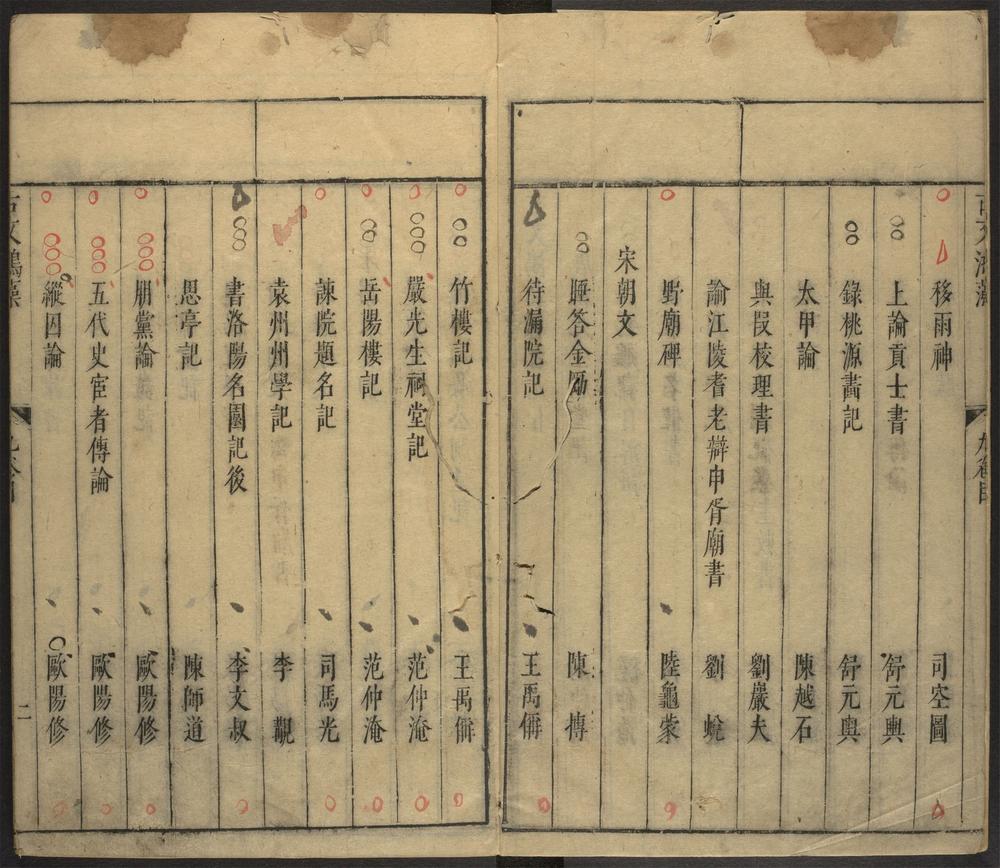 移雨神　司空圖
上諭貢士書　舒元輿
錄桃源畫記　舒元輿
太甲論　陳越石
與段校理書　劉巖夫
諭江陵耆老辯申胥廟書　劉蛻
野廟碑　陸龜蒙
宋朝文
匭答金　陳搏
待漏院記　王禹偁
竹樓記　王禹偁
嚴先生祠堂記　范仲淹
岳陽樓記　范仲淹
諫院題名記　司馬光
袁州州學記　李覯
書洛陽名園記後　李文叔
思亭記　陳師道
朋黨論　歐陽修
五代史宦者傳論　歐陽修
縱囚論　歐陽修
二